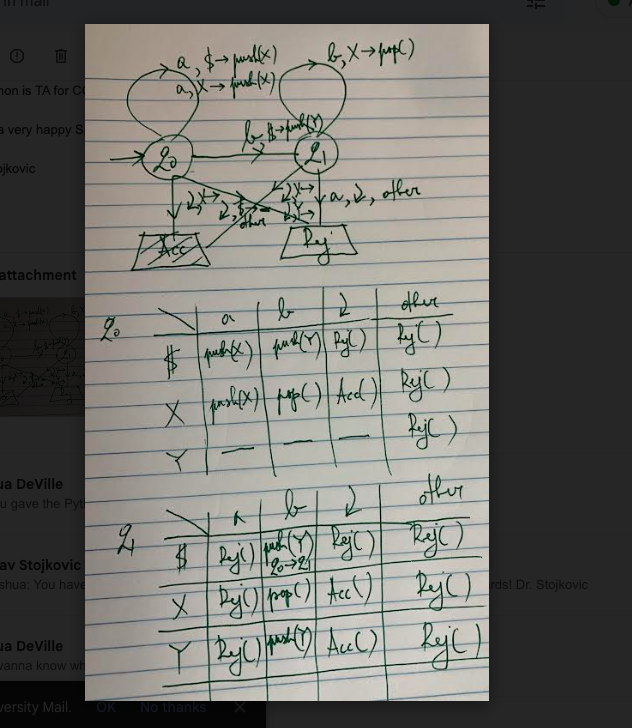 in mail
non is TA for CO
a very happy S
ojkovic
attachment
ua DeVille
u gave the Pyt
av Stojkovic
shua: You have
rds! Dr. Stojkovic
ua DeVille
vanna know wh
versity Mail.
OK
No thanks
a, $→push(X)
a, X→push(X)
b, X→pop()
b, $→push(Y)
q₀
q₁
↲, X→
↲, $→
other
↲, X→
↲, Y→
a, ↲, other
Acc
Rej
q₀
a b ↲ other
$ push(X) push(Y) Rej() Rej()
X push(X) pop() Acc() Rej()
Y — — — Rej()
q₁
a b ↲ other
$ Rej() push(Y) Rej() Rej()
q₀→q₁
X Rej() pop() Acc() Rej()
Y Rej() push(Y) Acc() Rej()